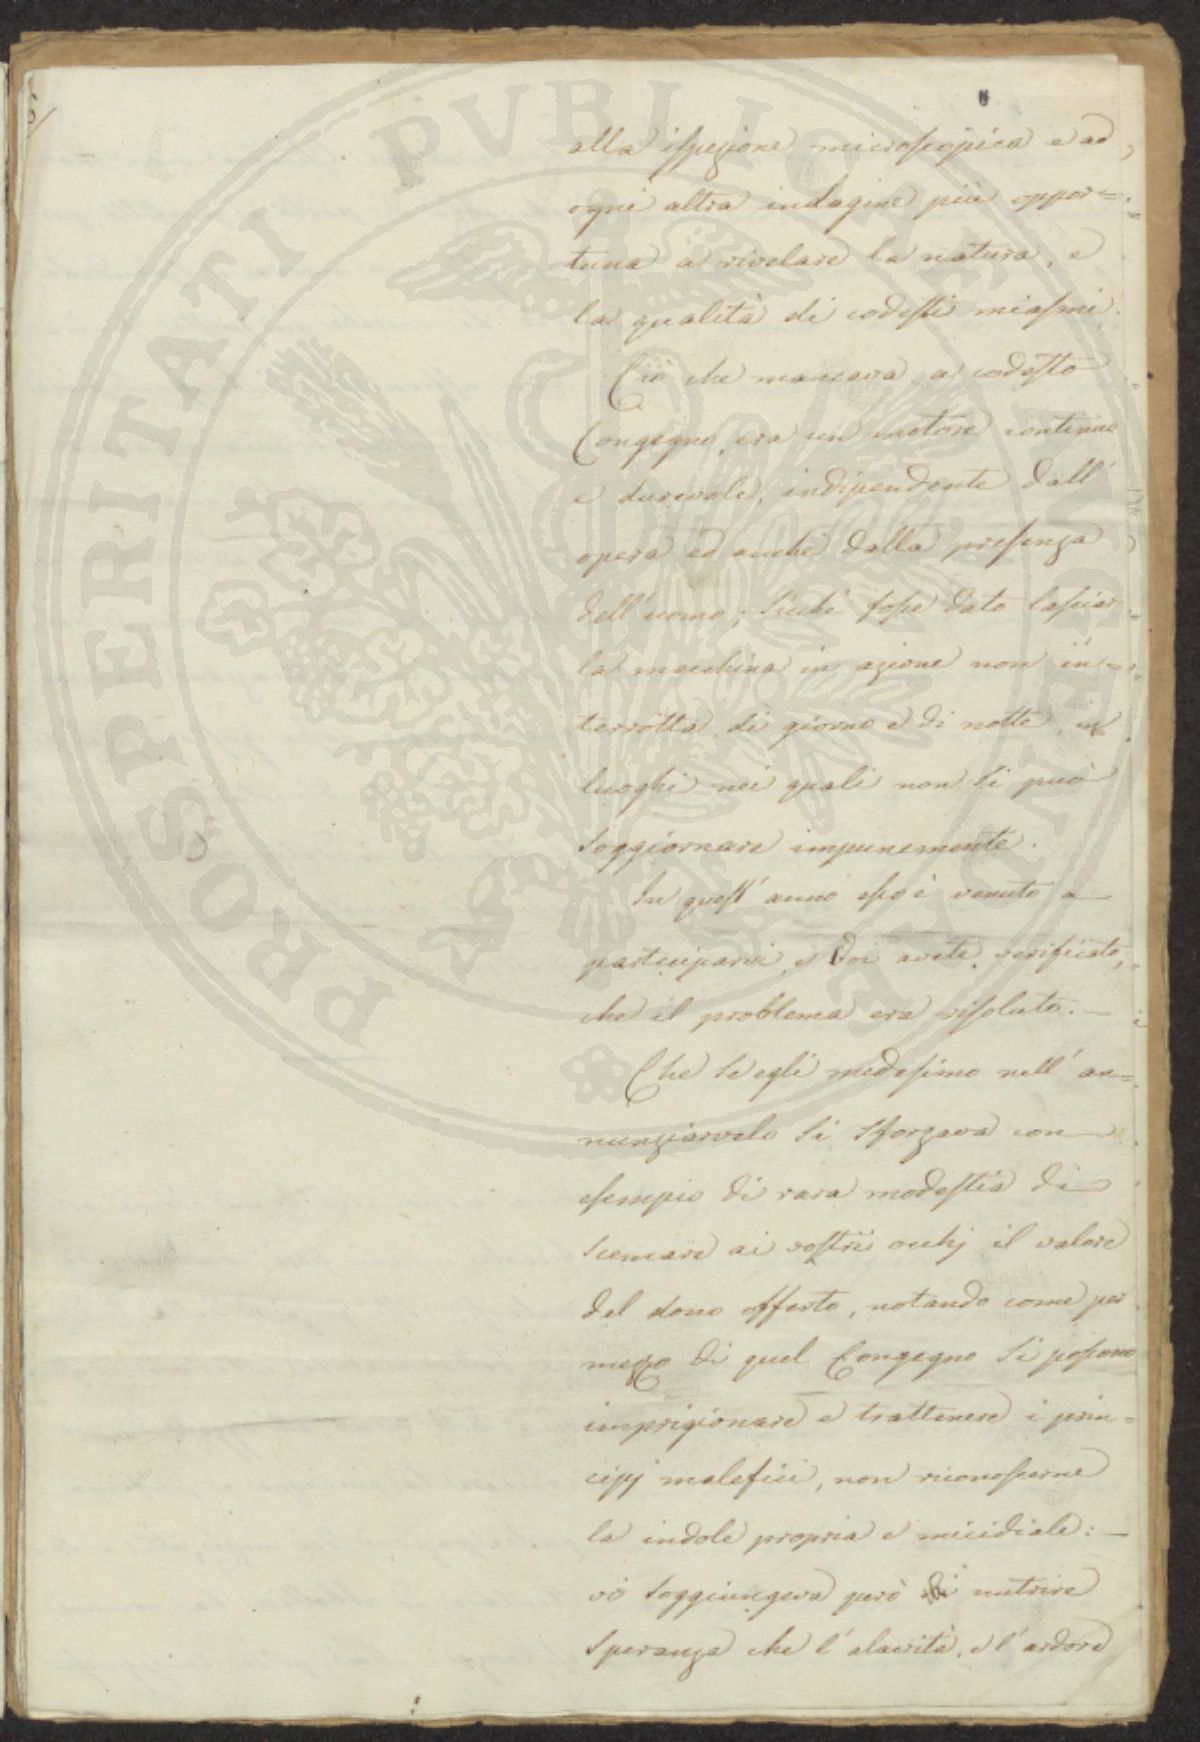 alla ispezione microscopica e ad
ogni altra indagine più oppor=
tuna a rivelare la natura, e
la qualità di codesti miasmi.
Ciò che mancava a codesto
Congegno, era un motore continuo
e durevole, indipendente dall'
opera ed anche dalla presenza
dell'uomo; sicchè fosse dato lasciar
la macchina in azione non in=
terrotta di giorno e di notte, in
luoghi nei quali non si può
soggiornare impunemente.
In quest'anno esso è venuto a
parteciparvi, e Voi avete verificato,
che il problema era risoluto. —
Che se egli medesimo nell'an=
nunziarvelo si sforzava con
esempio di rara modestia di
scemare ai vostri occhj il valore
del dono offerto, notando come per
mezzo di quel Congegno si possono
imprigionare e trattenere i prin=
cipj malefici, non riconoscerne
la indole propria e micidiale: —
vi soggiungeva però di nutrire
speranza che l'alacrità, e l'ardore
PROSPERITATI PVBLICAE AVGENDAE